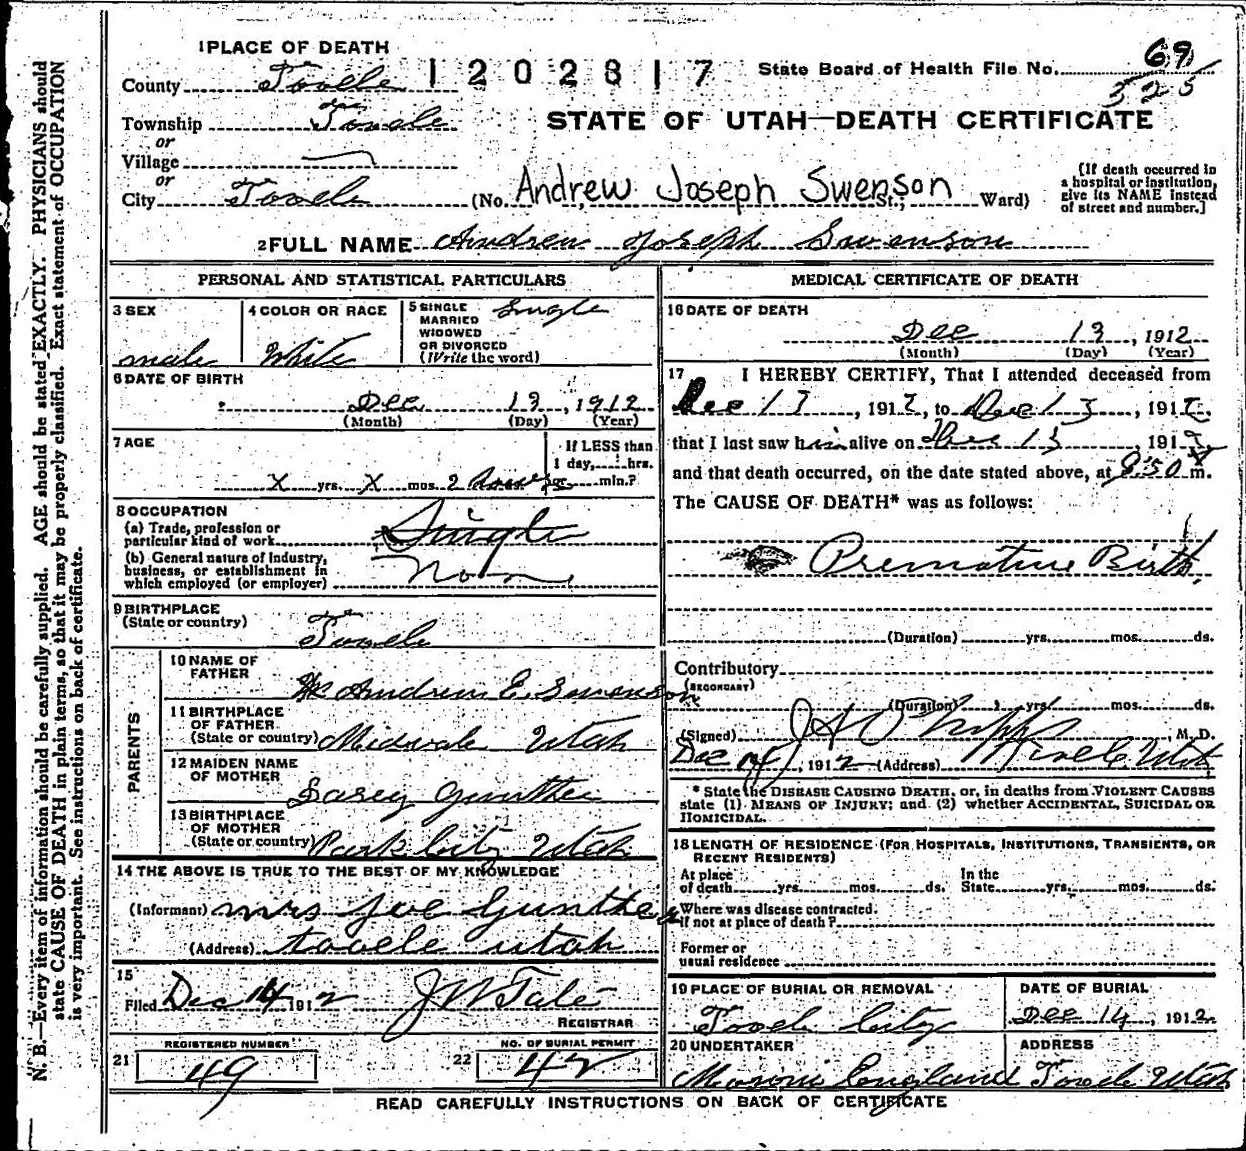 1 PLACE OF DEATH
County Tooele
1202817
State Board of Health File No. 69
325
Township Tooele
STATE OF UTAH—DEATH CERTIFICATE
or
Village
or
City Tooele (No. Andrew Joseph Swenson St.; Ward)
[If death occurred in
a hospital or institution,
give its NAME instead
of street and number.]
2 FULL NAME Andrew Joseph Swenson
PERSONAL AND STATISTICAL PARTICULARS
3 SEX
male
4 COLOR OR RACE
White
5 SINGLE
MARRIED
WIDOWED
OR DIVORCED
(Write the word)
Single
6 DATE OF BIRTH
Dec 13, 1912
(Month) (Day) (Year)
7 AGE
X yrs. X mos. 2
If LESS than
1 day, hrs.
or min.?
8 OCCUPATION
(a) Trade, profession or
particular kind of work Single
(b) General nature of Industry,
business, or establishment in
which employed (or employer) Non
9 BIRTHPLACE
(State or country)
Tooele
PARENTS
10 NAME OF
FATHER
Andrew E. Swenson
11 BIRTHPLACE
OF FATHER
(State or country) Midvale Utah
12 MAIDEN NAME
OF MOTHER
Gunther
13 BIRTHPLACE
OF MOTHER
(State or country) Park City Utah
14 THE ABOVE IS TRUE TO THE BEST OF MY KNOWLEDGE
(Informant) Mrs Joe Gunther
(Address) tooele utah
15
Filed Dec 14 1912 J W Tate
REGISTRAR
REGISTERED NUMBER
21 49
NO. OF BURIAL PERMIT
22 42
MEDICAL CERTIFICATE OF DEATH
16 DATE OF DEATH
Dec 13, 1912
(Month) (Day) (Year)
17 I HEREBY CERTIFY, That I attended deceased from
Dec 13, 1912, to Dec 13, 1912,
that I last saw him alive on Dec 13, 1912,
and that death occurred, on the date stated above, at m.
The CAUSE OF DEATH* was as follows:
Premature Birth,
(Duration) yrs. mos. ds.
Contributory
(SECONDARY)
(Duration) yrs. mos. ds.
(Signed) J A Phipps, M. D.
Dec 14, 1912 (Address) Tooele, Utah
* State the DISEASE CAUSING DEATH, or, in deaths from VIOLENT CAUSES
state (1) MEANS OF INJURY; and (2) whether ACCIDENTAL, SUICIDAL OR
HOMICIDAL.
18 LENGTH OF RESIDENCE (FOR HOSPITALS, INSTITUTIONS, TRANSIENTS, OR
RECENT RESIDENTS)
At place
of death yrs. mos. ds.
In the
State yrs. mos. ds.
Where was disease contracted.
if not at place of death?
Former or
usual residence
19 PLACE OF BURIAL OR REMOVAL
Tooele City
DATE OF BURIAL
Dec 14, 1912
20 UNDERTAKER
Moroni England
ADDRESS
Tooele Utah
READ CAREFULLY INSTRUCTIONS ON BACK OF CERTIFICATE
N. B.—Every item of information should be carefully supplied. AGE should be stated EXACTLY. PHYSICIANS should
state CAUSE OF DEATH in plain terms, so that it may be properly classified. Exact statement of OCCUPATION
is very important. See instructions on back of certificate.